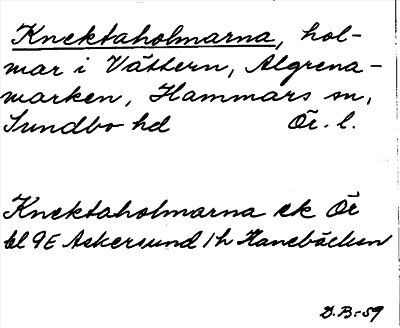 Knektaholmarna, hol-
mar i Vättern, Algrena-
marken, Hammars sn,
Sundbo hd Ör. l.
Knektaholmarna ek Ör
bl 9E Askersund 1h Hanebäcken
D.B.-59